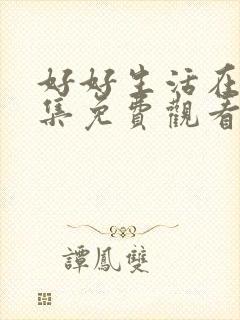 好好生活在
集免費觀看
譚鳳雙